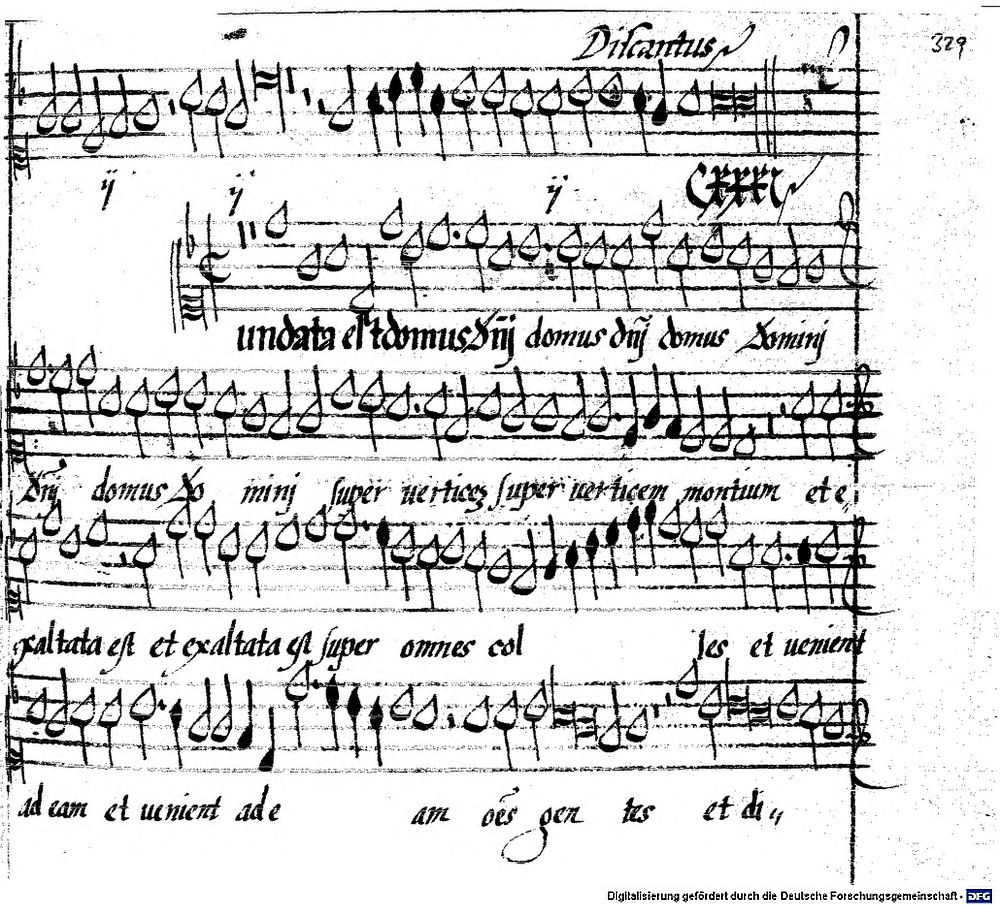 Discantus
329
ij ij ij CXXXI
undata est domus dñij domus dñij domus Dominj
dñij domus Do minj super verticẽ super verticem montium et e
xaltata est et exaltata est super omnes col les et uenient
ad eam et uenient ad e am oẽs gen tes et di
Digitalisierung gefördert durch die Deutsche Forschungsgemeinschaft - DFG